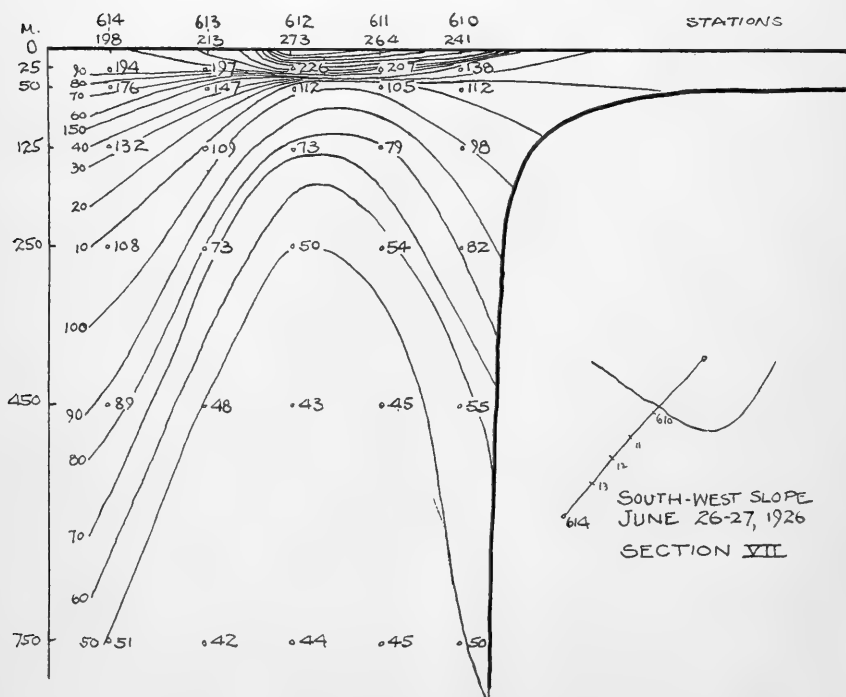 614 613 612 611 610 STATIONS
M. 198 213 273 264 241
0
25 90 194 197 226 207 138
50 80 176 147 112 105 112
70
60
150
125 40 132 109 73 79 98
30
20
250 10 108 73 50 54 82
100
450 90 89 48 43 45 55
80
70
60
750 50 51 42 44 45 50
610
11
12
13
614
SOUTH-WEST SLOPE
JUNE 26-27, 1926
SECTION VII